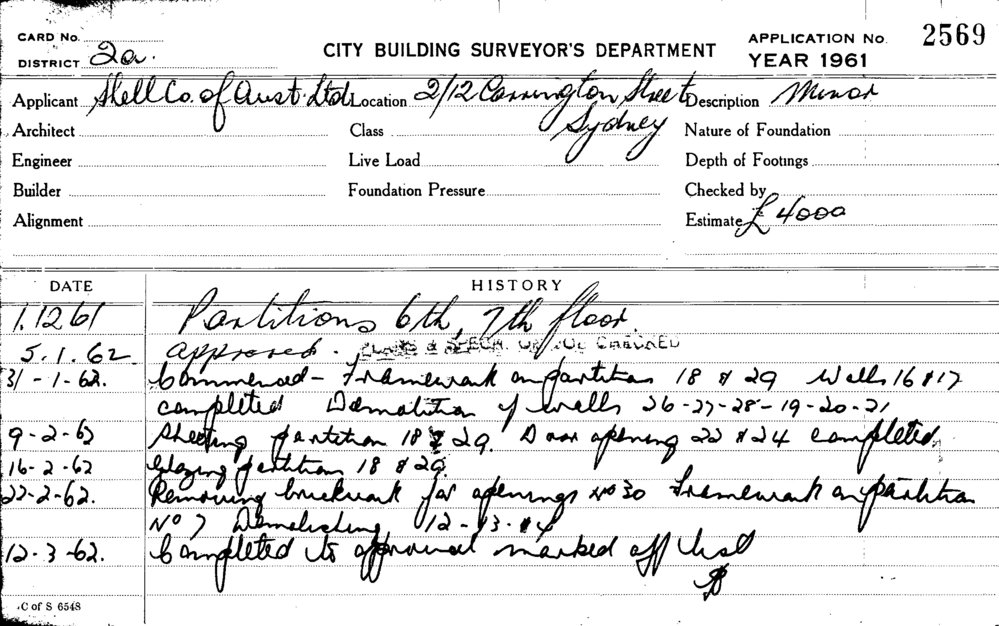 CARD No.
DISTRICT 2a.
CITY BUILDING SURVEYOR'S DEPARTMENT
APPLICATION No. 2569
YEAR 1961
Applicant Shell Co. of Aust. Ltd. Location 2/12 Carrington Street Sydney Description Minor
Architect Class Nature of Foundation
Engineer Live Load Depth of Footings
Builder Foundation Pressure Checked by
Alignment Estimate £ 4000
DATE HISTORY
1.12 61 Partitions 6th, 7th floor.
5.1.62 approved. PLANS & SPECN. ON JOB CHECKED
31-1-62. Commenced - Framework on partition 18 & 29 Walls 16 & 17
completed Demolition of walls 26-27-28-19-20-21
9-2-62 Sheeting partition 18 & 29. Door opening 22 & 24 completed.
16-2-62 Glazing partition 18 & 29.
22-2-62. Removing brickwork for openings No 30 Framework on partition
No 7 Demolishing 12-13-14
12-3-62. Completed to approval marked off list
C of S 6548